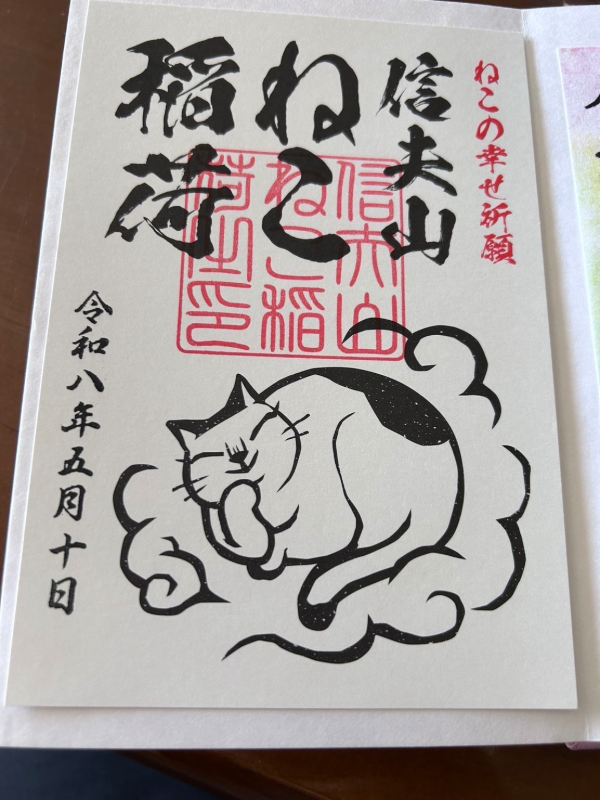 ねこの幸せ祈願
信夫山
ねこ
稲荷
信夫山
ねこ稲
荷之印
令和八年五月十日